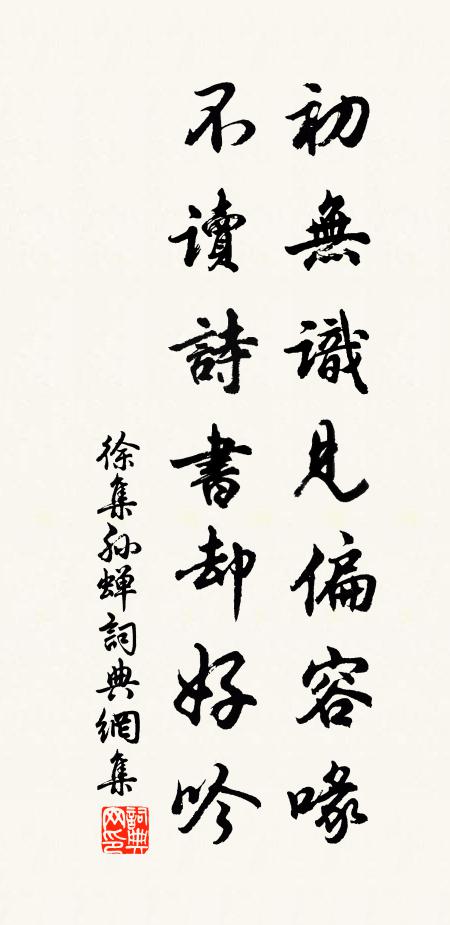 初無識見偏容喙
不讀詩書却好吟
徐集孫蝉詞典網集
詞典网印